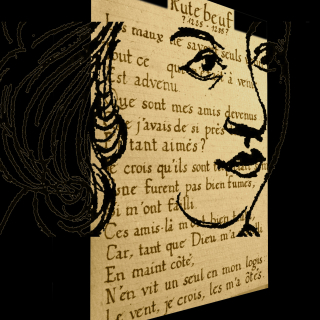 Rutebeuf
? 1225 - 1295?
Les maux ne savent seuls
Tout ce que à ven
Est advenu
Que sont mes amis devenus
Que j'avais de si près
tant aimés?
Je crois qu'ils sont
ne furent pas bien fumés,
Si m'ont failli.
Ces amis-là m'ont bien
Car, tant que Dieu m'a
En maint côté,
N'en vit un seul en mon logis.
Le vent, je crois, les m'a ôtés.